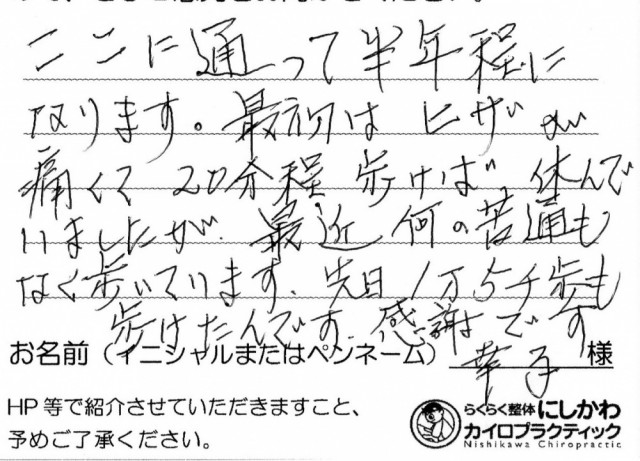 ここに通って半年程に
なります。最初は ヒザが
痛くて 20分程 歩けば、休んで
いましたが、最近 何の苦通も
なく歩いています。先日 1万5千歩も
歩けたんです。感謝です
お名前（イニシャルまたはペンネーム） 幸子 様
HP等で紹介させていただきますこと、
予めご了承ください。
らくらく整体 にしかわ
カイロプラクティック
Nishikawa Chiropractic